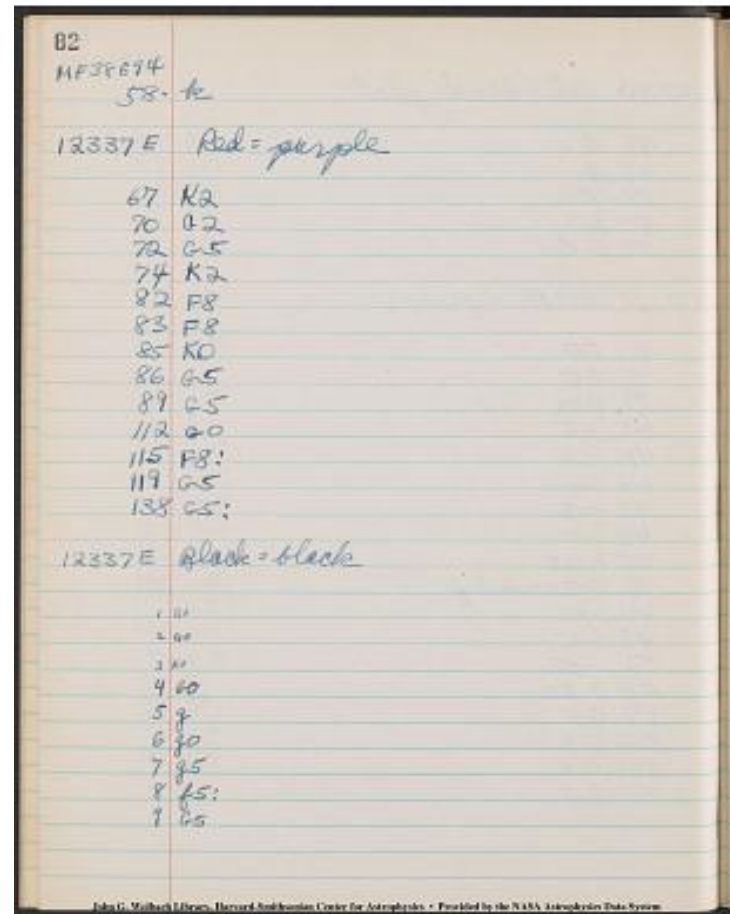 82
MF38694
58- k
12337 E Red = purple
67 K2
70 G2
72 G5
74 K2
82 F8
83 F8
85 K0
86 G5
89 G5
112 G0
115 F8:
119 G5
138 G5:
12337 E Black = black
1
2 G0
3
4 G0
5 g
6 g0
7 g5
8 f5:
9 G5
John G. Wolbach Library, Harvard-Smithsonian Center for Astrophysics • Provided by the NASA Astrophysics Data System